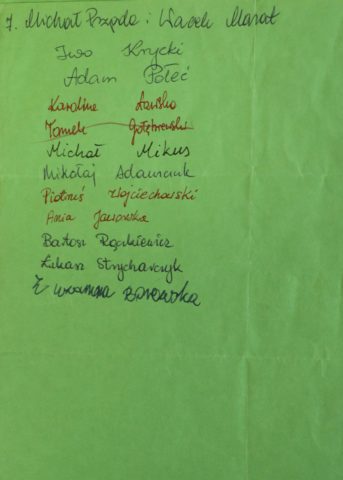 7. Michał Przęda i Wacek Marat
Iwo Krycki
Adam Połeć
Karolina
Tomek Gołębiewski
Michał Mikus
Mikołaj Adamczuk
Piotruś Wojciechowski
Ania Jaworska
Bartosz Rąckiewicz
Łukasz Strycharczyk